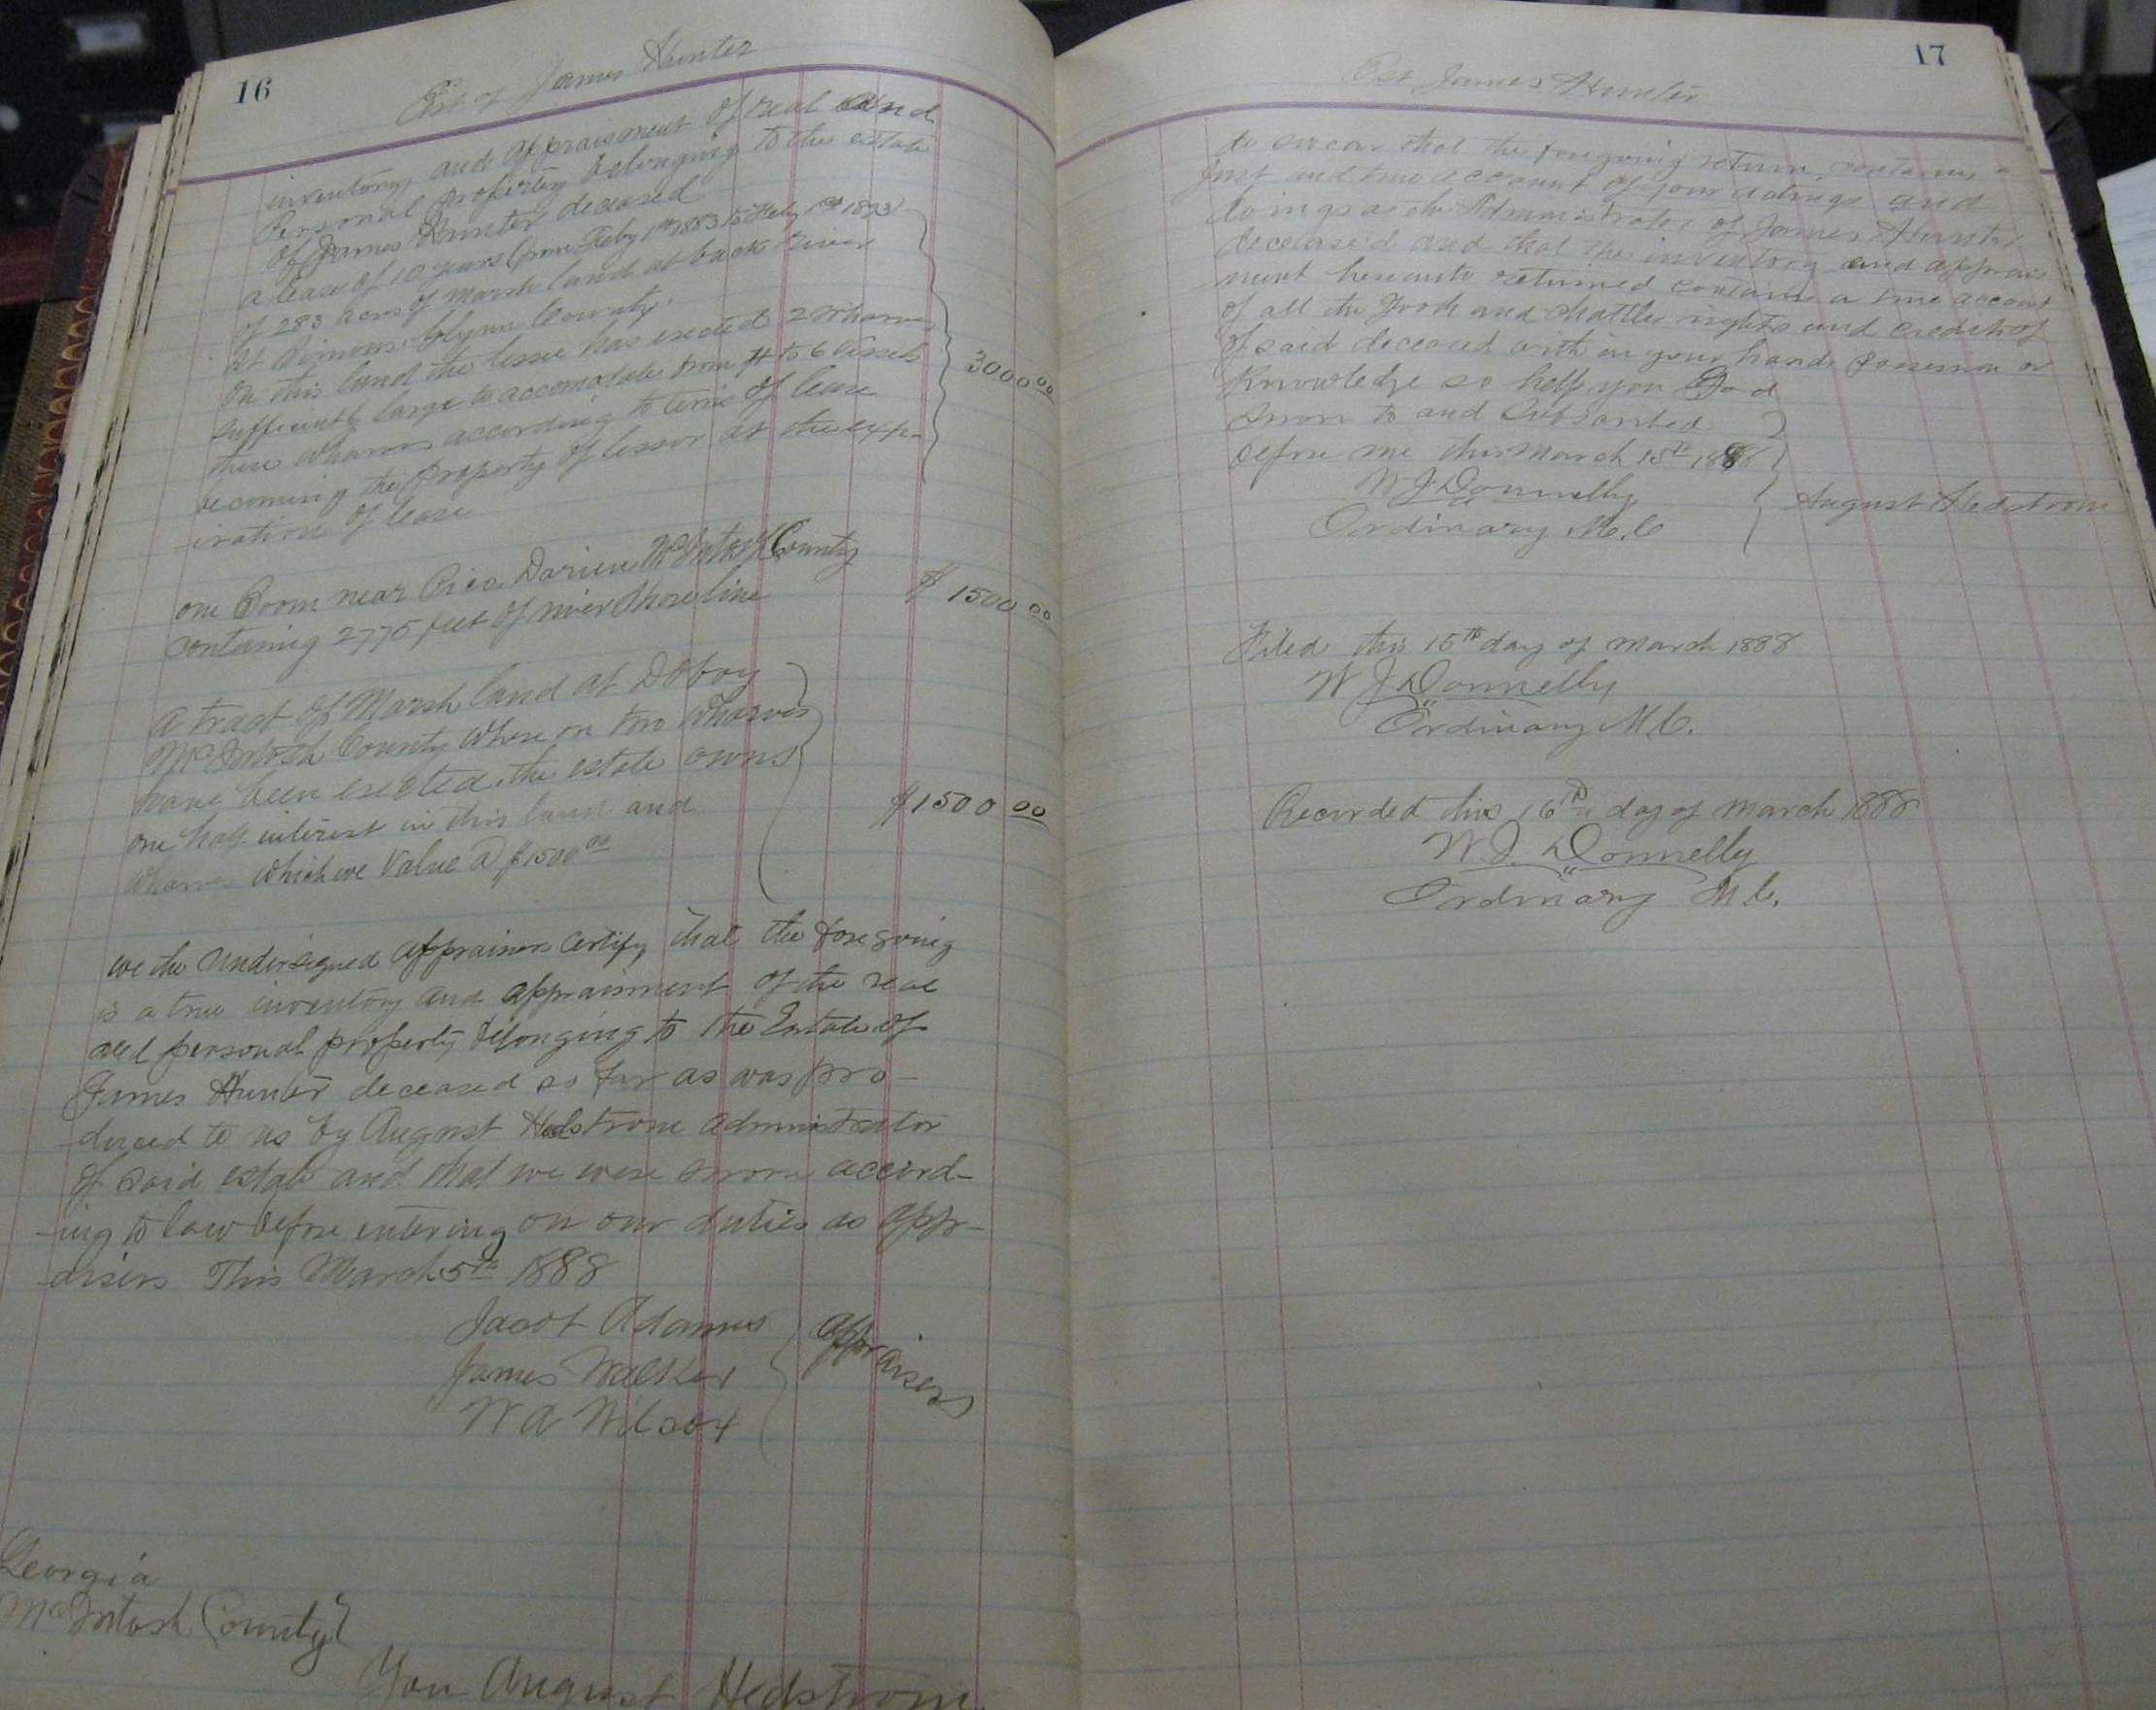 16
Est of James Hunter
inventory and appraisment of real and
Personal property belonging to the estate
of James Hunter deceased
a lease of 10 years from Feby 1st 1883 to Feby 1st 1893
of 283 acres of marsh land at back River
St Simons, Glynn County.
On this land the lessee has erected 2 wharves
sufficiently large to accomodate from 4 to 6 Vessels
these wharves according to terms of lease
becoming the property of lessor at the exp-
iration of lease
3000 00
one Boom near Rico Darien McIntosh County
containing 2775 feet of river Shore line
$ 1500 00
A tract of Marsh land at Doboy
McIntosh County where on two wharves
have been erected, the estate owns
one half interest in this land and
wharves which we Value @ $1500 00
$1500 00
we the undersigned appraisers certify that the foregoing
is a true inventory and appraisment of the real
and personal property belonging to the Estate of
James Hunter deceased so far as was pro-
duced to us by August Hedstrom administrator
of said estate and that we were sworn accord-
-ing to law before entering on our duties as appr-
-aisers This March 5th 1888
Jacob Adams
James Walker
W A Wilcox
appraisers
Georgia
McIntosh County
You August Hedstrom
17
Est James Hunter
do swear that the foregoing return, contains a
just and true account of your actings and
doings as the Administrator of James Hunter
deceased and that the inventory and apprais
-ment hereunto returned contains a true account
of all the Goods and chattles rights and credits of
of said deceased with in your hands possession or
Knowledge so help you God
Sworn to and Subscribed
before me this March 15th 1888
W J Donnelly
Ordinary M.C
August Hedstrom
Filed this 15th day of March 1888
W J Donnelly
Ordinary M.C.
Recorded this 16th day of March 1888
W. J. Donnelly
Ordinary M C.